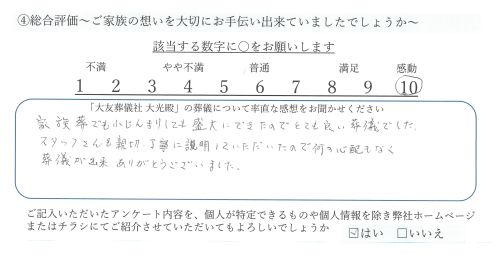 ④総合評価～ご家族の想いを大切にお手伝い出来ていましたでしょうか～
該当する数字に○をお願いします
不満 やや不満 普通 満足 感動
1 2 3 4 5 6 7 8 9 10
「大友葬儀社 大光殿」の葬儀について率直な感想をお聞かせください
家族葬でも小じんまりしても盛大にできたのでとても良い葬儀でした。
スタッフさんも親切.丁寧に説明していただいたので何の心配もなく
葬儀が出来ありがとうございました。
ご記入いただいたアンケート内容を、個人が特定できるものや個人情報を除き弊社ホームページ
またはチラシにてご紹介させていただいてもよろしいでしょうか ☑はい □いいえ